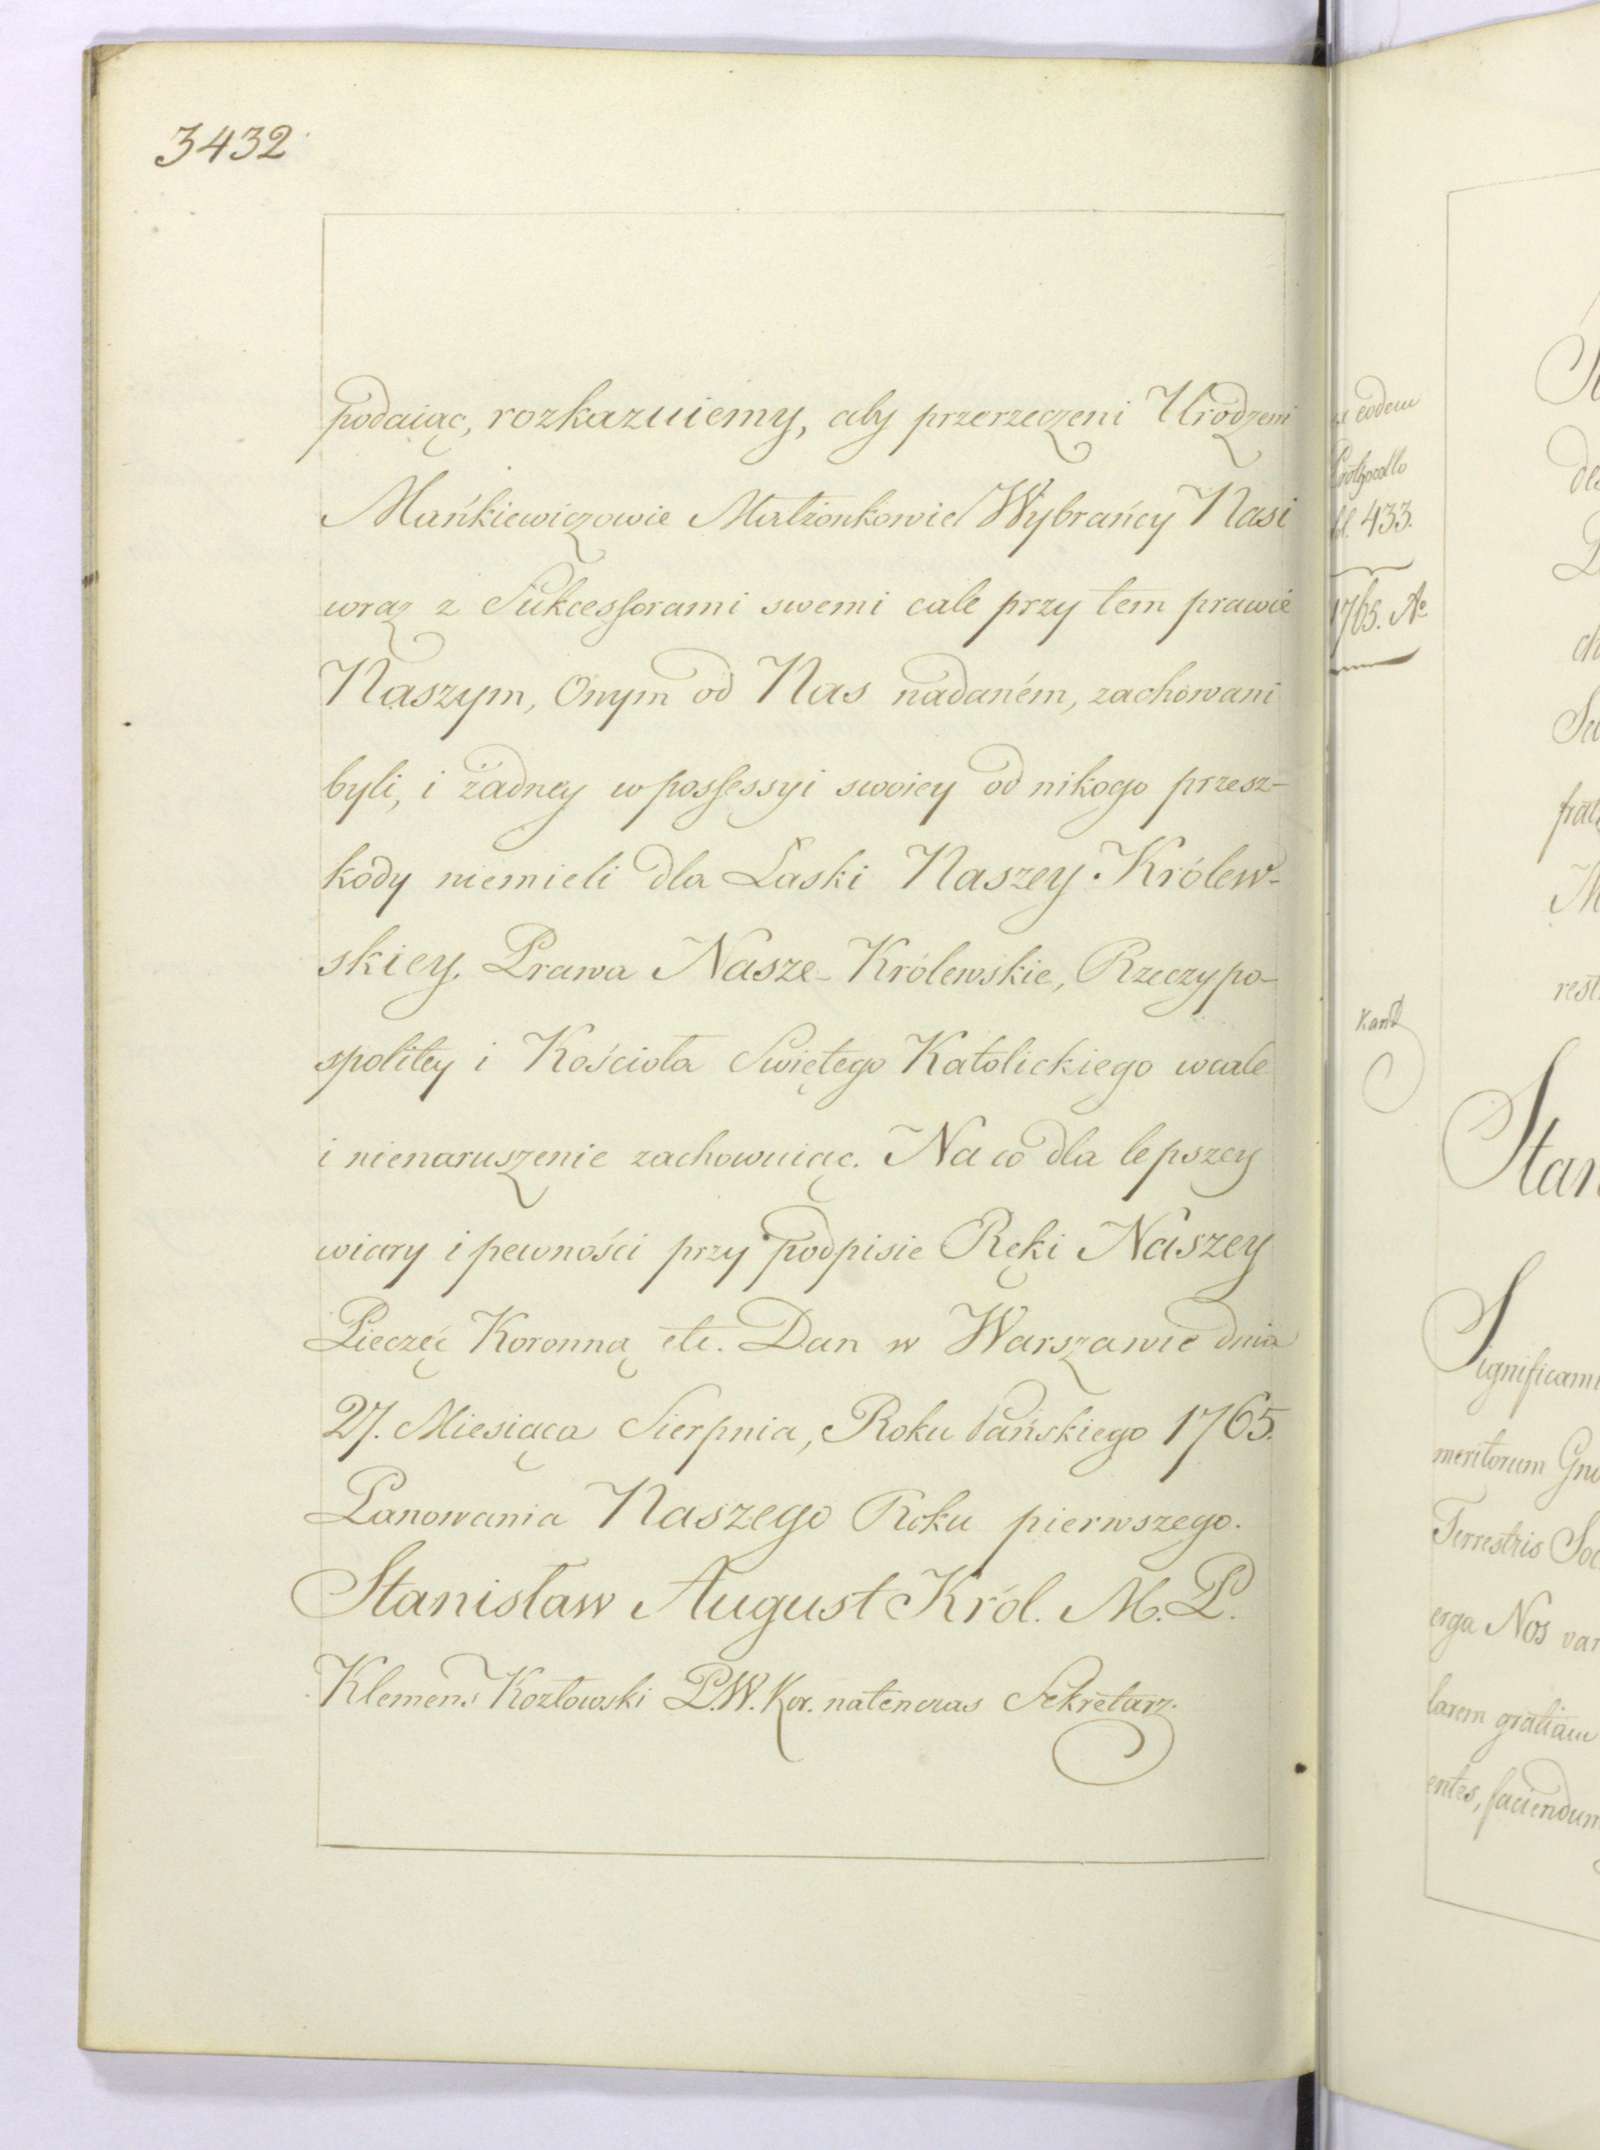 3432
podaiąc, rozkazuiemy, aby przerzeczeni Urodzeni
Mańkiewiczowie Małżonkowie Wybrańcy Nasi
wraz z Sukcessorami swemi cale przy tem prawie
Naszym, Onym od Nas nadaném, zachowani
byli, i żadney w possessyi swoiey od nikogo przesz-
kody niemieli dla Łaski Naszey Królew-
skiey. Prawa Nasze Królewskie, Rzeczypo-
spolitey i Kościoła Swiętego Katolickiego wcale
i nienaruszenie zachowuiąc. Na co dla lepszey
wiary i pewności przy podpisie Ręki Naszey
Pieczęć Koronną etc. Dan w Warszawie dnia
27. Miesiąca Sierpnia, Roku Pańskiego 1765.
Panowania Naszego Roku pierwszego.
Stanisław August Król. M. P.
Klemens Kozłowski P.W. Kor. natenczas Sekretarz.
eodem
433.
1765. Aº
Stan
Significam
meritorum
Terrestris
erga Nos
larem gratiam
entes, faciendum